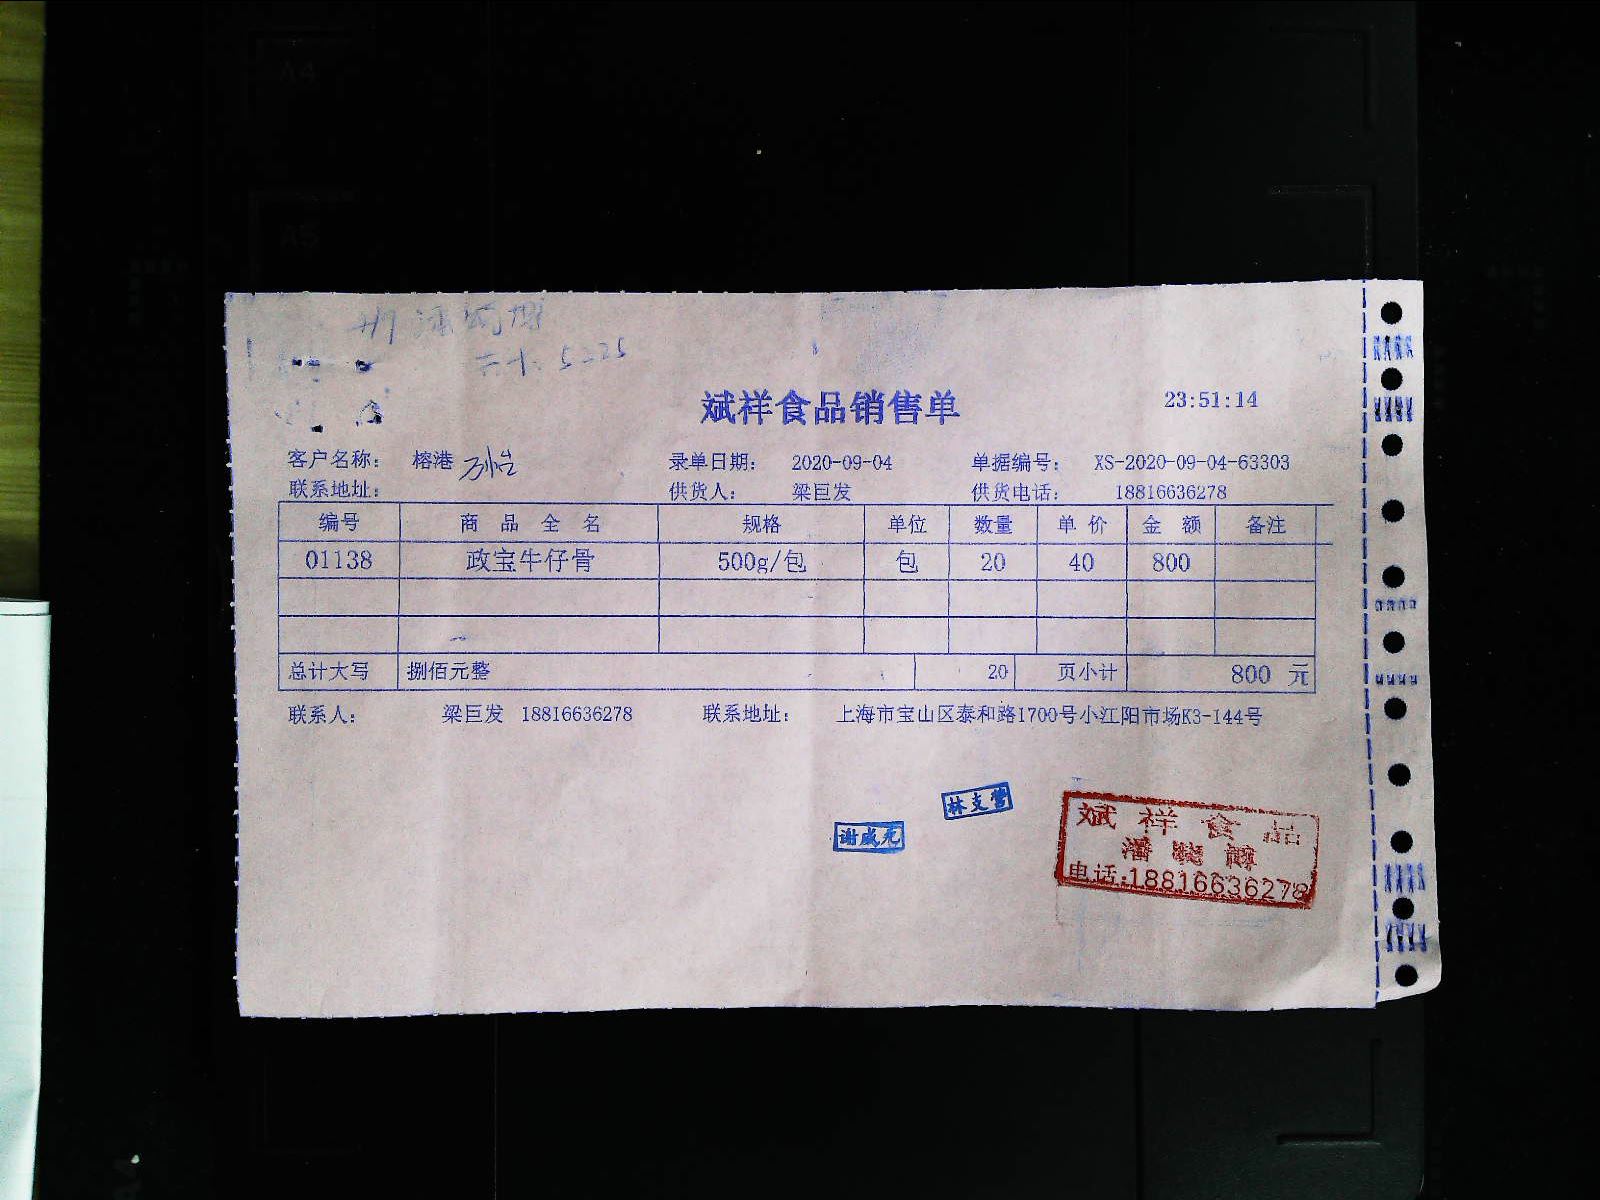 A4
A5
5225
斌祥食品销售单
23:51:14
客户名称： 榕港 录单日期： 2020-09-04 单据编号： XS-2020-09-04-63303
联系地址： 供货人： 梁巨发 供货电话： 18816636278
编号 商品全名 规格 单位 数量 单价 金额 备注
01138 政宝牛仔骨 500g/包 包 20 40 800
总计大写 捌佰元整 20 页小计 800 元
联系人： 梁巨发 18816636278 联系地址： 上海市宝山区泰和路1700号小江阳市场K3-144号
林支营
谢成光
斌祥食品
潘
电话:18816636278